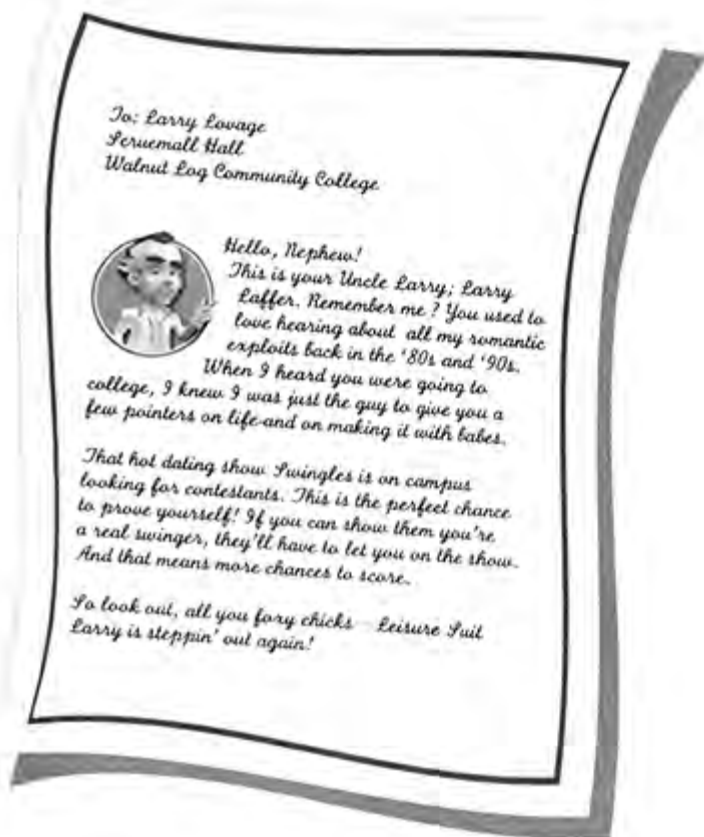 To: Larry Lovage
Scruemall Hall
Walnut Log Community College
Hello, Nephew!
This is your Uncle Larry; Larry
Laffer. Remember me? You used to
love hearing about all my romantic
exploits back in the '80s and '90s.
When I heard you were going to
college, I knew I was just the guy to give you a
few pointers on life-and on making it with babes.
That hot dating show Swingles is on campus
looking for contestants. This is the perfect chance
to prove yourself! If you can show them you're
a real swinger, they'll have to let you on the show.
And that means more chances to score.
So look out, all you foxy chicks - Leisure Suit
Larry is steppin' out again!